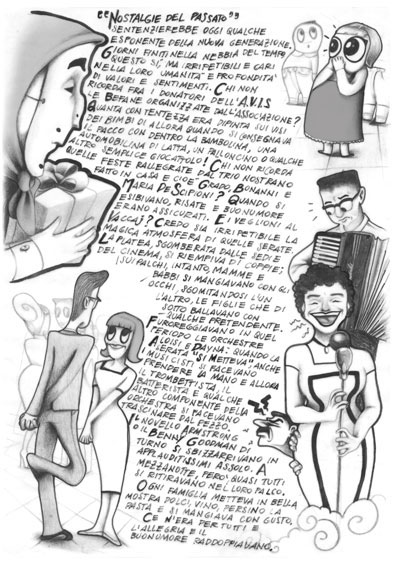 “NOSTALGIE DEL PASSATO”,
SENTENZIEREBBE OGGI QUALCHE
ESPONENTE DELLA NUOVA GENERAZIONE.
GIORNI FINITI NELLA NEBBIA DEL TEMPO,
QUESTO SÌ, MA IRRIPETIBILI E CARI
NELLA LORO UMANITÀ E PROFONDITÀ
DI VALORI E SENTIMENTI. CHI NON
RICORDA FRA I DONATORI DELL'A.V.I.S
LE BEFANE ORGANIZZATE DALL'ASSOCIAZIONE?
QUANTA CONTENTEZZA ERA DIPINTA SUI VISI
DEI BIMBI DI ALLORA QUANDO SI CONSEGNAVA
IL PACCO CON DENTRO LA BAMBOLINA, UNA
AUTOMOBILINA DI LATTA, UN PALLONCINO O QUALCHE
ALTRO SEMPLICE GIOCATTOLO! CHI NON RICORDA
QUELLE FESTE RALLEGRATE DAL TRIO NOSTRANO
FATTO IN CASA E CIOÈ GRADO, BONANNI E
MARIA DE SCIPIONI? QUANDO SI
ESIBIVANO, RISATE E BUONUMORE
ERANO ASSICURATI. E I VEGLIONI AL
VACCAJ? CREDO SIA IRRIPETIBILE LA
MAGICA ATMOSFERA DI QUELLE SERATE.
LA PLATEA, SGOMBERATA DALLE SEDIE
DEL CINEMA, SI RIEMPIVA DI COPPIE;
SUI PALCHI, INTANTO, MAMME E
BABBI SI MANGIAVANO CON GLI
OCCHI, SGOMITANDOSI L'UN
L'ALTRO, LE FIGLIE CHE DI
SOTTO BALLAVANO CON
QUALCHE PRETENDENTE.
FUROREGGIAVANO IN QUEL
PERIODO LE ORCHESTRE
ALOISI E DAYNA: QUANDO LA
SERATA “SI METTEVA” ANCHE
I MUSICISTI SI FACEVANO
PRENDERE LA MANO E ALLORA
IL TROMBETTISTA, IL
BATTERISTA E QUALCHE
ALTRO COMPONENTE DELLA
ORCHESTRA SI FACEVANO
TRASCINARE DAL PEZZO.
IL NOVELLO ARMSTRONG
O IL BENNY GOODMAN DI
TURNO SI SBIZZARRIVANO IN
APPLAUDITISSIMI ASSOLO. A
MEZZANOTTE, PERÒ, QUASI TUTTI
SI RITIRAVANO NEL LORO PALCO.
OGNI FAMIGLIA METTEVA IN BELLA
MOSTRA DOLCI, VINO, PERSINO LA
PASTA E SI MANGIAVA CON GUSTO.
CE N'ERA PER TUTTI E
L'ALLEGRIA E IL
BUONUMORE RADDOPPIAVANO.